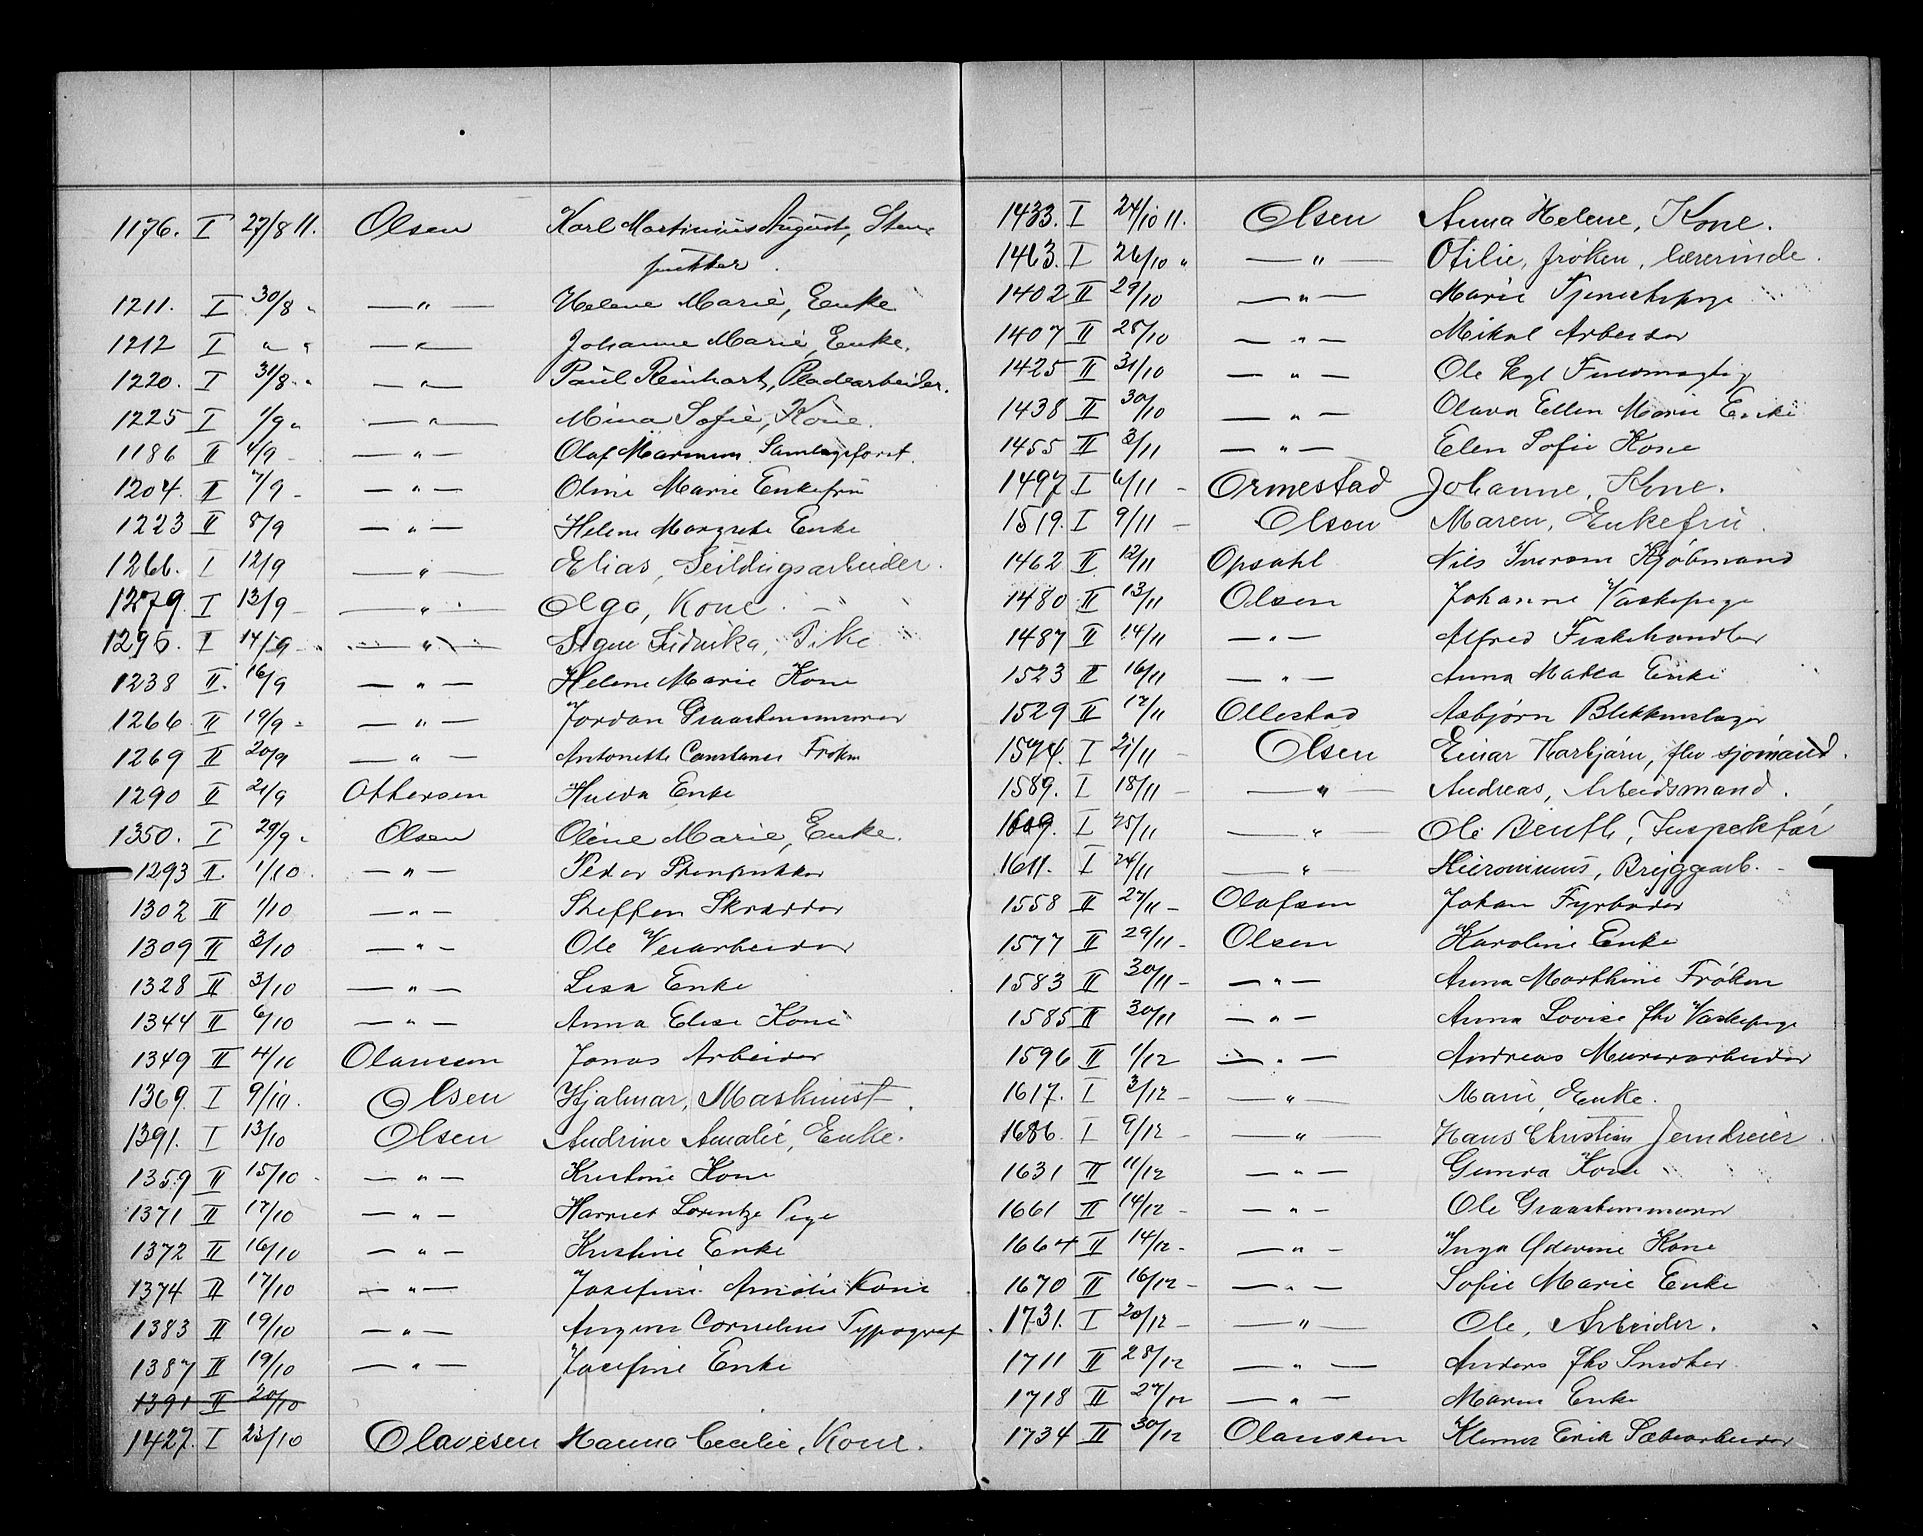 1176. I 27/8 11. Olsen Karl Martinius August, Sten
pukker.
1211. I 30/8 " —"— Helene Marie, Enke
1212 I " " —"— Johanne Marie, Enke.
1220. I 31/8 " —"— Paul Reinhart, Pladearbeider.
1225 I 1/9 " —"— Mina Sofie, Kone.
1186 II 4/9 —"— Olaf
1204. II 7/9 - —"— Oline Marie Enkefru
1223 II 8/9 —"— Helene Margrete Enke
1266. I 12/9 —"— Elias, Seildugsarbeider.
1279. I 13/9 - —"— Olga, Kone
1296. I 14/9 —"— Signe Pike
1238 II. 16/9 —"— Helene Marie Kone
1266 II 19/9 - —"— Jordan Graastensmurer
1269 II 20/9 —"— Antonette Constance Frøken
1290 II 21/9 Ottersen Hulda Enke
1350. I 29/9 Olsen Oline Marie, Enke.
1293 II 1/10. —"— Peder Stenpukker
1302 II 1/10 —"— Steffen Skrædder
1309 II 3/10 —"— Ole Veiarbeider
1328 II 3/10 —"— Lisa Enke
1344 II 6/10 —"— Anna Elise Kone
1349 II 4/10 Olaussen Jonas Arbeider
1369. I 9/10. Olsen Hjalmar, Maskinist.
1391. I 13/10 Olsen Andrine Amalie, Enke.
1359 II 15/10 —"— Kristine Kone
1371 II 17/10 —"— Harriet Lorentze Pige
1372 II 16/10 —"— Kristine Enke
1374 II 17/10 —"— Josefine Amalie Kone
1383 II 19/10 —"— Cornelius Typograf
1387 II 19/10 —"— Josefine Enke
1391 II 20/10
1427. I 23/10 Olavesen Hanna Cecilie, Kone.
1433. I 24/10 11. Olsen Anna Helene, Kone.
1463. I 26/10 " —"— Otilie, frøken, lærerinde.
1402 II 29/10 —"— Marie Tjenestepige
1407 II 25/10 —"— Mikal Arbeider
1425 II 31/10 —"— Ole kgl Fuldmægtig
1438 II 30/10 —"— Olava Ellen Marie Enke
1455 II 3/11 —"— Elen Sofie Kone
1497 I 6/11 - Ormestad Johanne, Kone.
1519. I 9/11 - Olsen Maren, Enkefru.
1462 II 12/11 Opsahl Nils Kjøbmand
1480 II 13/11 Olsen Johanne Vaskepige
1487 II 14/11 —"— Alfred Fiskehandler
1523 II 16/11 —"— Anna Enke
1529 II 17/11 Ollestad Asbjørn Blikkenslager
1574. I 21/11 - Olsen Einar Thorbjørn, fhv sjømand.
1589. I 18/11 - —"— Andreas, Arbeidsmand.
1609. I 25/11 —"— Ole Inspektør
1611. I 24/11 —"— Hieronimus, Bryggearb. -
1558 II 27/11 - Olafsen Johan Fyrbøder
1577 II 29/11 - Olsen Karoline Enke
1583 II 30/11 - —"— Anna Marthine Frøken
1585 II 30/11 —"— Anna Lovise fhv Vaskepige
1596 II 1/12 —"— Andreas Murerarbeider
1617. I 3/12 - —"— Marie, Enke.
1686. I 9/12 - —"— Hans Christian Jerndreier.
1631 II 11/12 —"— Gunda Kone
1661 II 14/12 - —"— Ole Graastensmurer
1664 II 14/12 - —"— Inga Kone
1670 II 16/12 - —"— Sofie Marie Enke
1731. I 20/12 - —"— Ole, Arbeider.
1711 II 28/12 —"— Anders fhv Snedker
1718 II 27/12 —"— Maren Enke
1734 II 30/12 Olaussen Erik